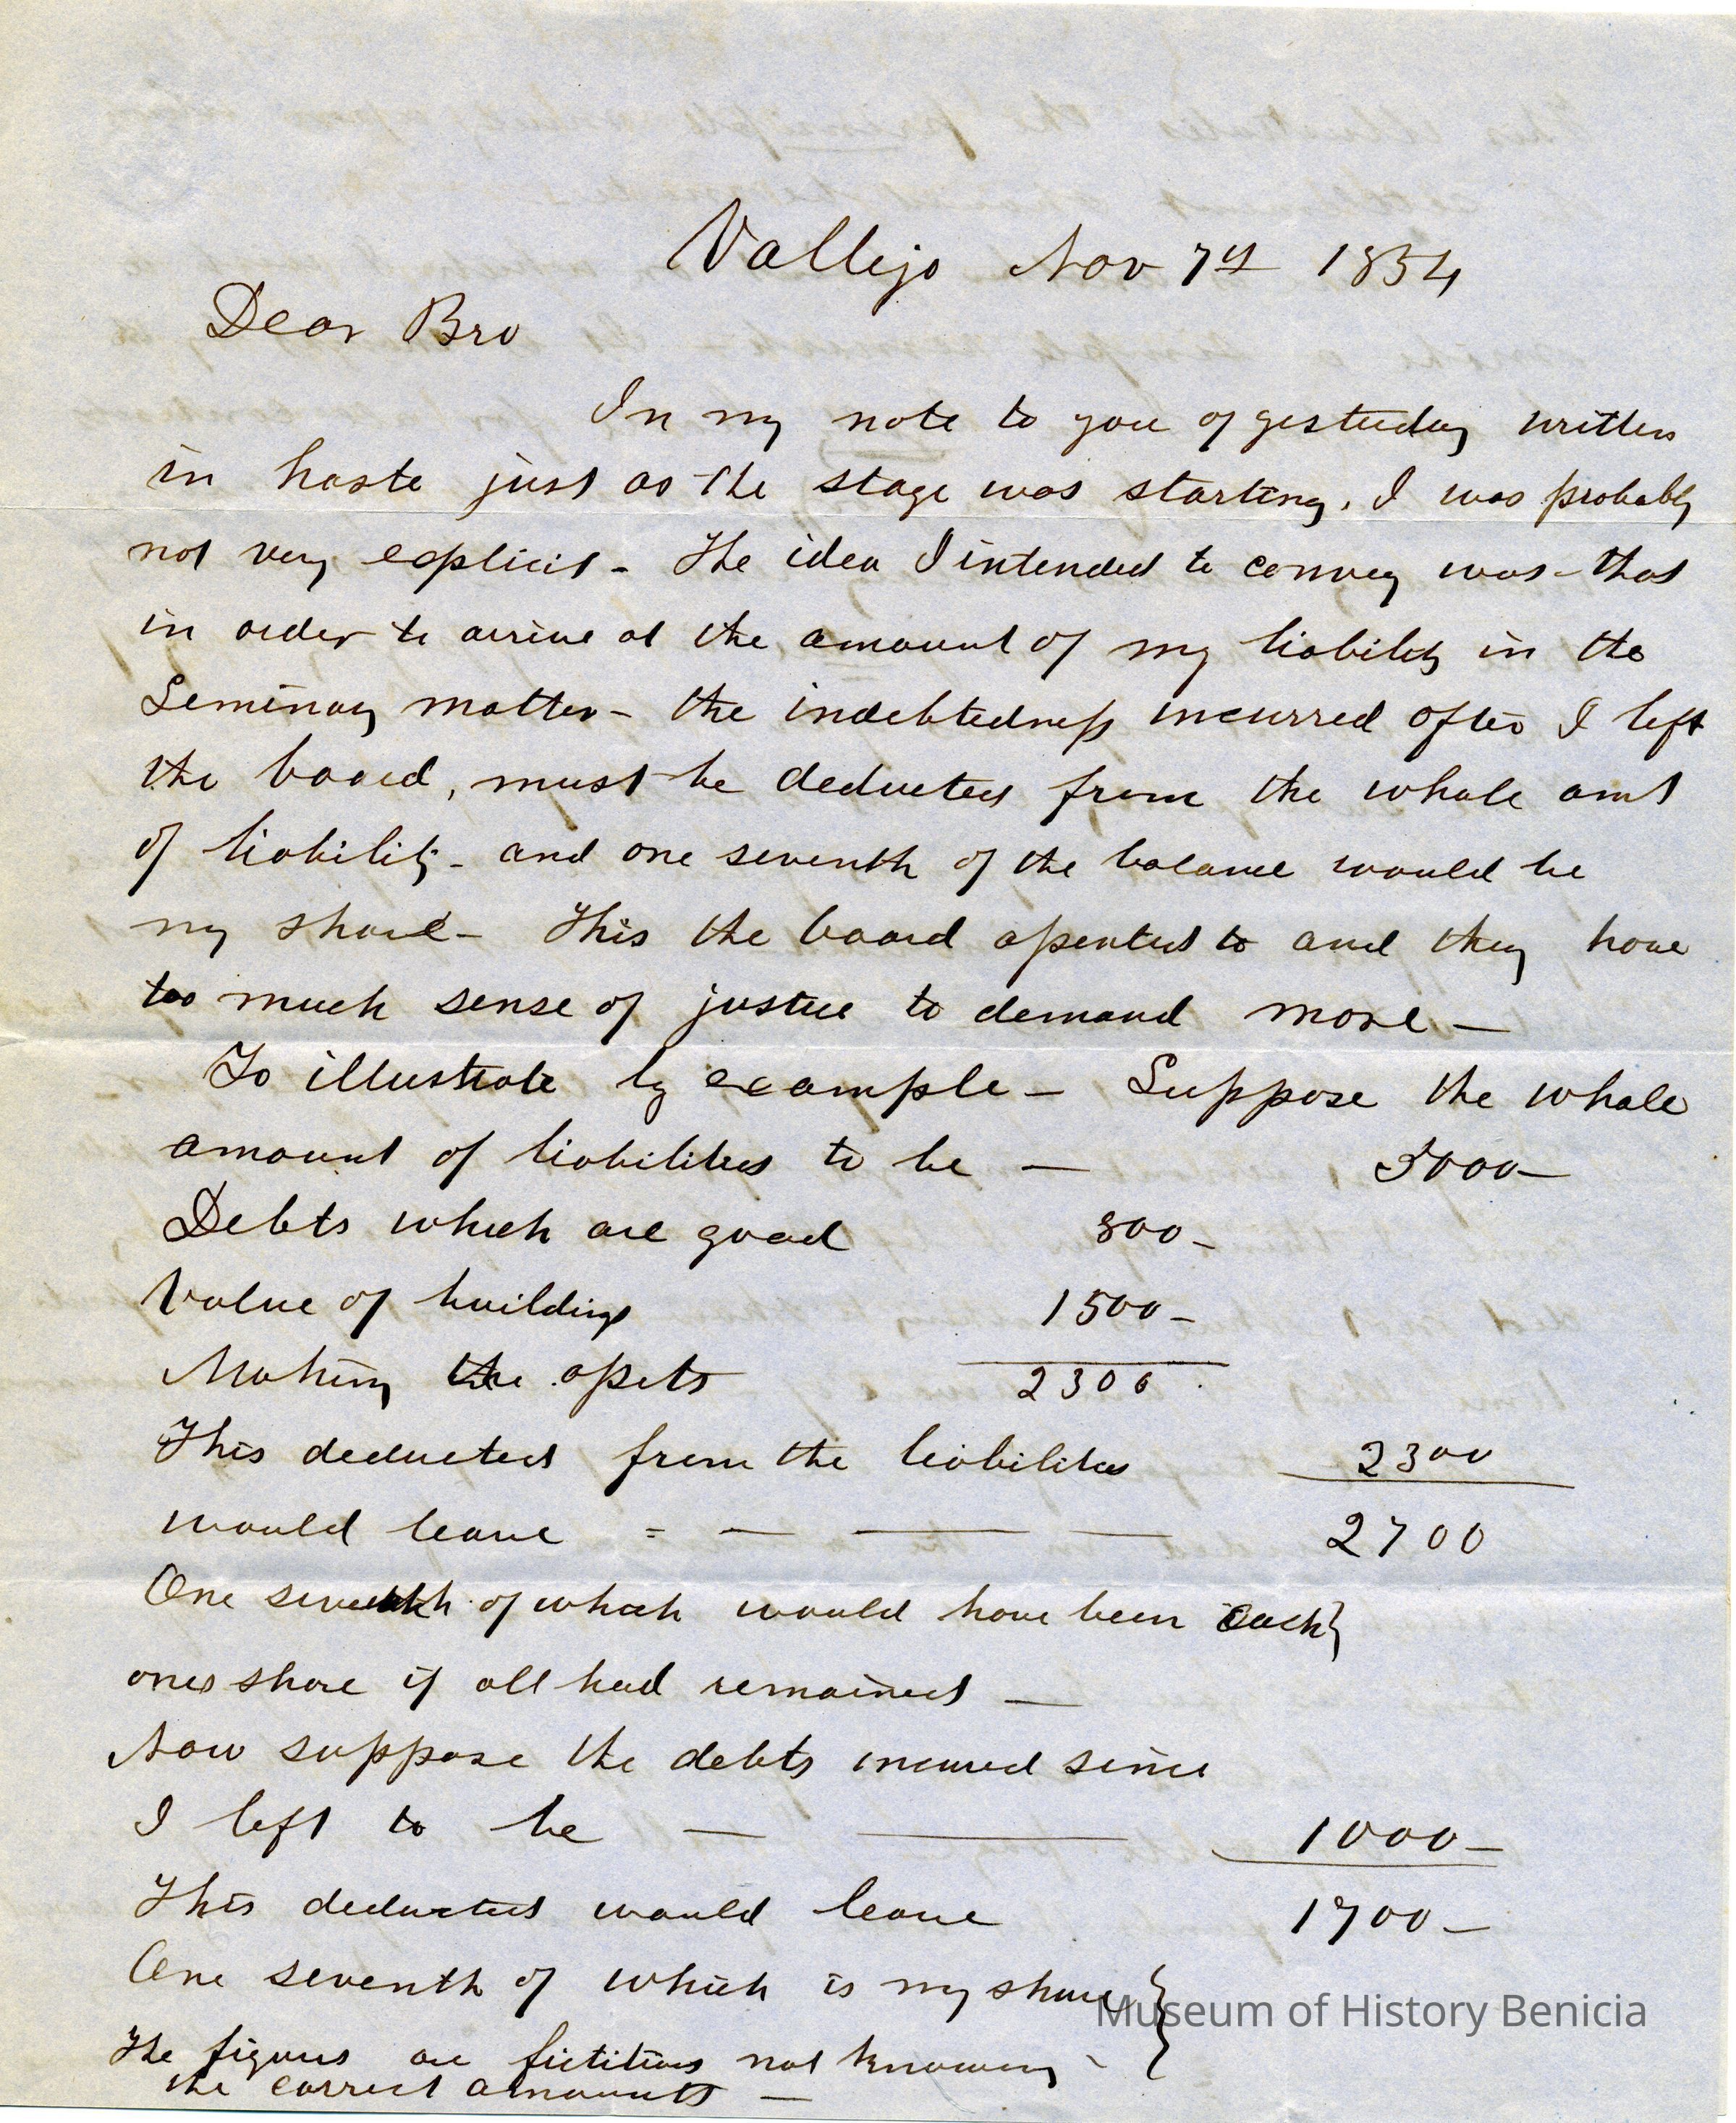 Vallejo Nov 7th 1854
Dear Bro
In my note to you of yesterday written
in haste just as the stage was starting, I was probably
not very explicit - The idea I intended to convey was - that
in order to arrive at the amount of my liability in the
Seminary matter - the indebtedness incurred after I left
the board, must be deducted from the whole amt
of liability - and one seventh of the balance would be
my share - This the board assented to and they have
too much sense of justice to demand more -
To illustrate by example - Suppose the whole
amount of liabilities to be - 5000 -
Debts which are good 800 -
Value of buildings 1500 -
Making the assets 2300
This deducted from the liabilities 2300
would leave = - - - 2700
One seventh of which would have been each }
ones share if all had remained -
Now suppose the debts incurred since
I left to be - - 1000 -
This deducted would leave 1700 -
One seventh of which is my share }
The figures are fictitious not knowing -
the correct amounts -
Museum of History Benicia